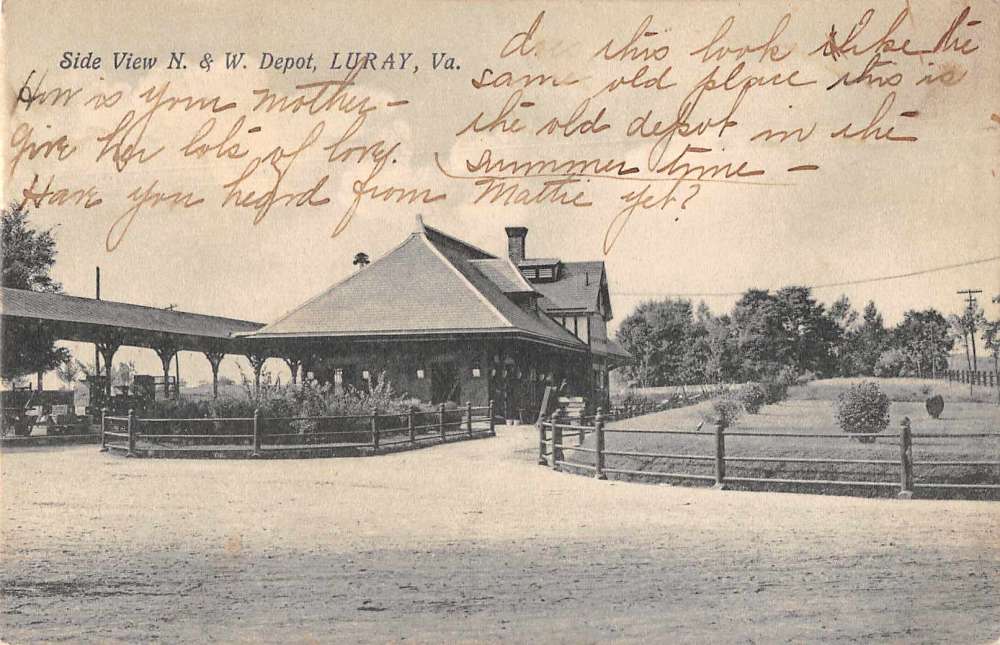 Side View N. & W. Depot, LURAY, Va.
does this look like the
same old place this is
the old depot in the
summer time -
How is your mother -
Give her lots of love.
Have you heard from Mattie yet?